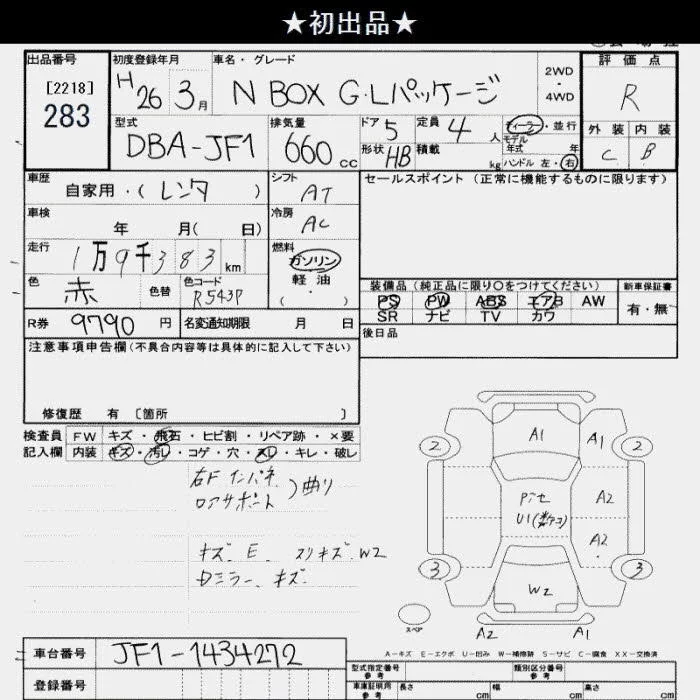 ★初出品★
出品番号
[2218]
283
初度登録年月
H 26 3月
車名・グレード
N BOX G・Lパッケージ
2WD
・
4WD
評価点
R
外装 内装
C B
型式
DBA-JF1
排気量
660 cc
ドア 5
形状 HB
定員 4 人
積載 kg
ディーラー・並行
モデル
年式 年
ハンドル 左・右
車歴
自家用・(レンタ)
シフト
AT
セールスポイント (正常に機能するものに限ります)
車検
年 月( 日)
冷房
AC
走行
1万9千383km
燃料
ガソリン
軽油
( ・ )
色
赤
色替
色コード
R543P
装備品(純正品に限り○をつけてください)
新車保証書
PS PW ABS エアB AW
SR ナビ TV カワ
有・無
R券
9790 円
名変通知期限 月 日
後日品
注意事項申告欄(不具合内容等は具体的に記入して下さい)
修復歴 有 [箇所 ]
検査員
記入欄
FW キズ・飛石・ヒビ割・リペア跡・×要
内装 キズ・汚し・コゲ・穴・スレ・キレ・破レ
右F インパネ
ロアサポート
)曲り
キズ、E、スリキズ、W2
Dミラー、キズ
A1
A1
2
2
Pitセ
U1
A2
A2
3
3
W2
スペア
A2
A1
A-キズ E-エクボ U-凹み W-補修跡 S-サビ C-腐食 XX-交換済
車台番号
JF1-1434272
登録番号
型式指定番号
参考
類別区分番号
参考
車庫証明用
参考
長さ cm
幅 cm
高さ cm